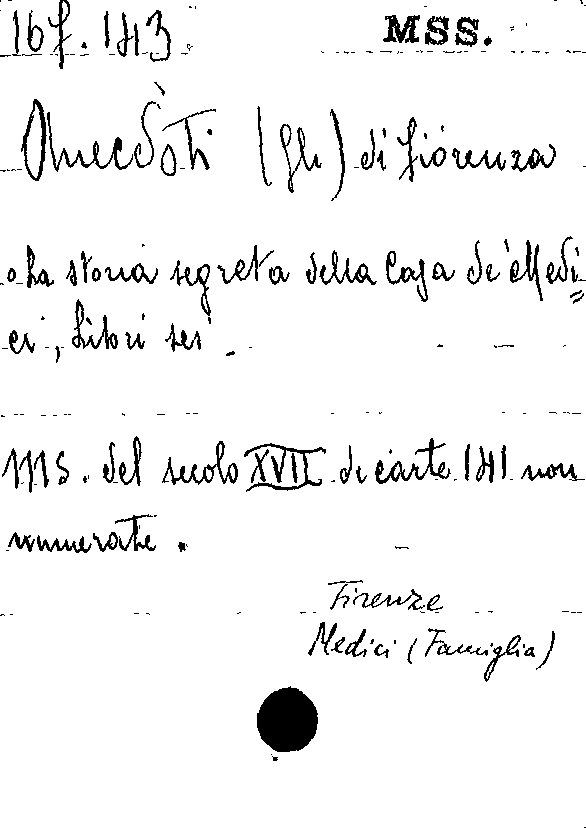 16 f. 143 MSS.
Anecdoti (Gli) di Fiorenza
o La storia segreta della Casa de' Medi=
ci, Libri sei.
MS. del secolo XVII di carte 141 non
numerate.
Firenze
Medici (Famiglia)